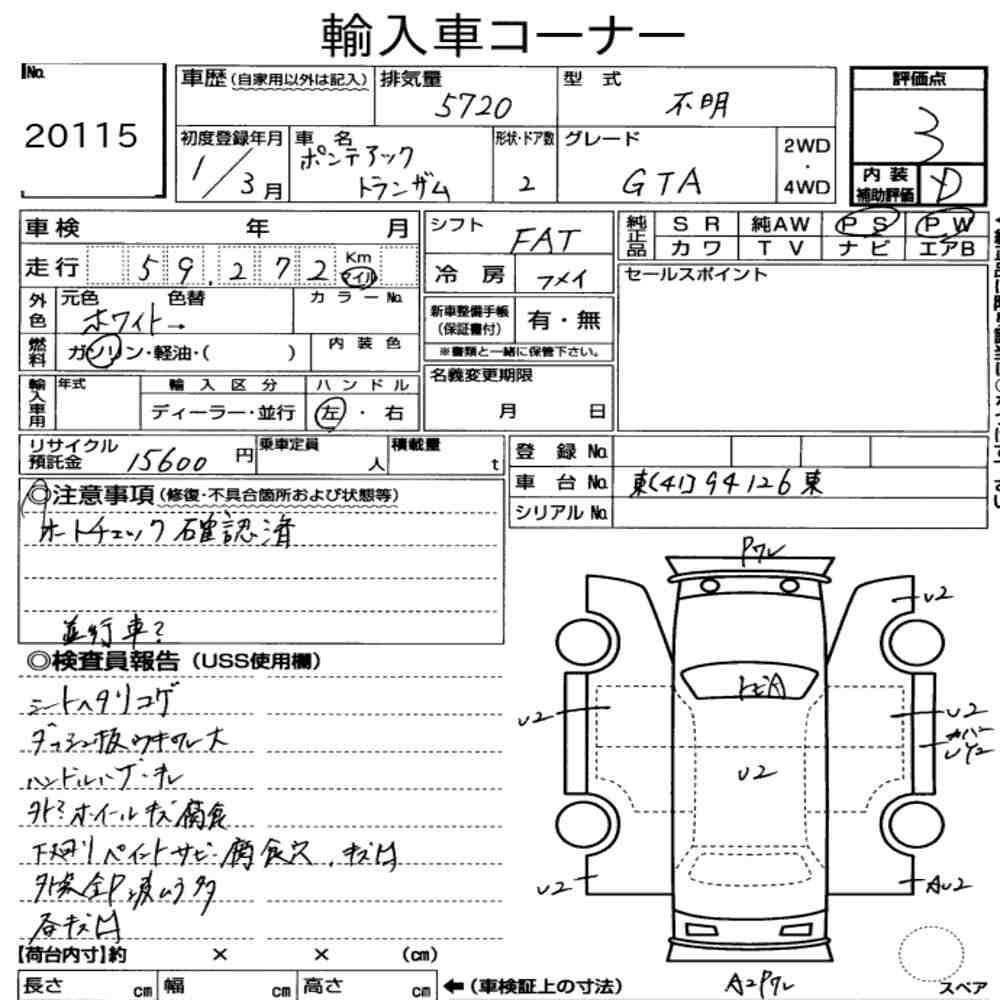 輸入車コーナー
No. 20115
車歴（自家用以外は記入）
排気量 5720
型式 不明
評価点 3
初度登録年月 1/3月
車名 ポンテアック トランザム
形状・ドア数 2
グレード GTA
2WD・4WD
内装補助評価 D
車検 年 月
シフト FAT
純正品 SR 純AW PS PW
カワ TV ナビ エアB
走行 59,272 Km マイル
冷房
セールスポイント
外色 元色 ホワイト→ 色替 カラーNo.
新車整備手帳（保証書付） 有・無
※書類と一緒に保管下さい。
燃料 ガソリン・軽油・( )
内装色
名義変更期限 月 日
輸入車用 年式
輸入区分 ディーラー・並行
ハンドル 左・右
リサイクル預託金 15600円
乗車定員 人
積載量 t
登録No.
車台No. 東(41)94126東
シリアルNo.
◎注意事項（修復・不具合箇所および状態等）
オートチェック確認済
並行車?
◎検査員報告（USS使用欄）
シートヘタリコゲ
ダッシュ板ウキワレ大
ハンドル
ホイールキズ腐食
下廻りペイントサビ腐食穴、キズ凹
キズ凹
【荷台内寸】約 × × (cm)
長さ cm 幅 cm 高さ cm
←（車検証上の寸法）
Pワレ
U2
U2
U2
U2
U2
AU2
A2Pワレ
スペア